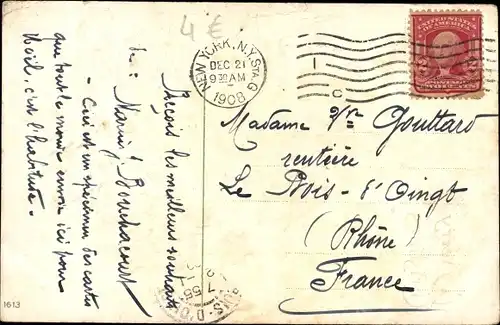 4 €
NEW YORK, N.Y. STA. G
DEC 21
9 30 AM
1908
1
C
UNITED STATES
OF AMERICA
Madame Vve Gouttard
rentière
Le Bois-d'Oingt
(Rhône)
France
Recois les meilleurs souhaits
de: Marius Bouchacourt
- Ceci est un spécimen des cartes
que tout le monde envoie ici pour
Noël. c'est l'habitude -
BOIS-D'O
7 55
1613